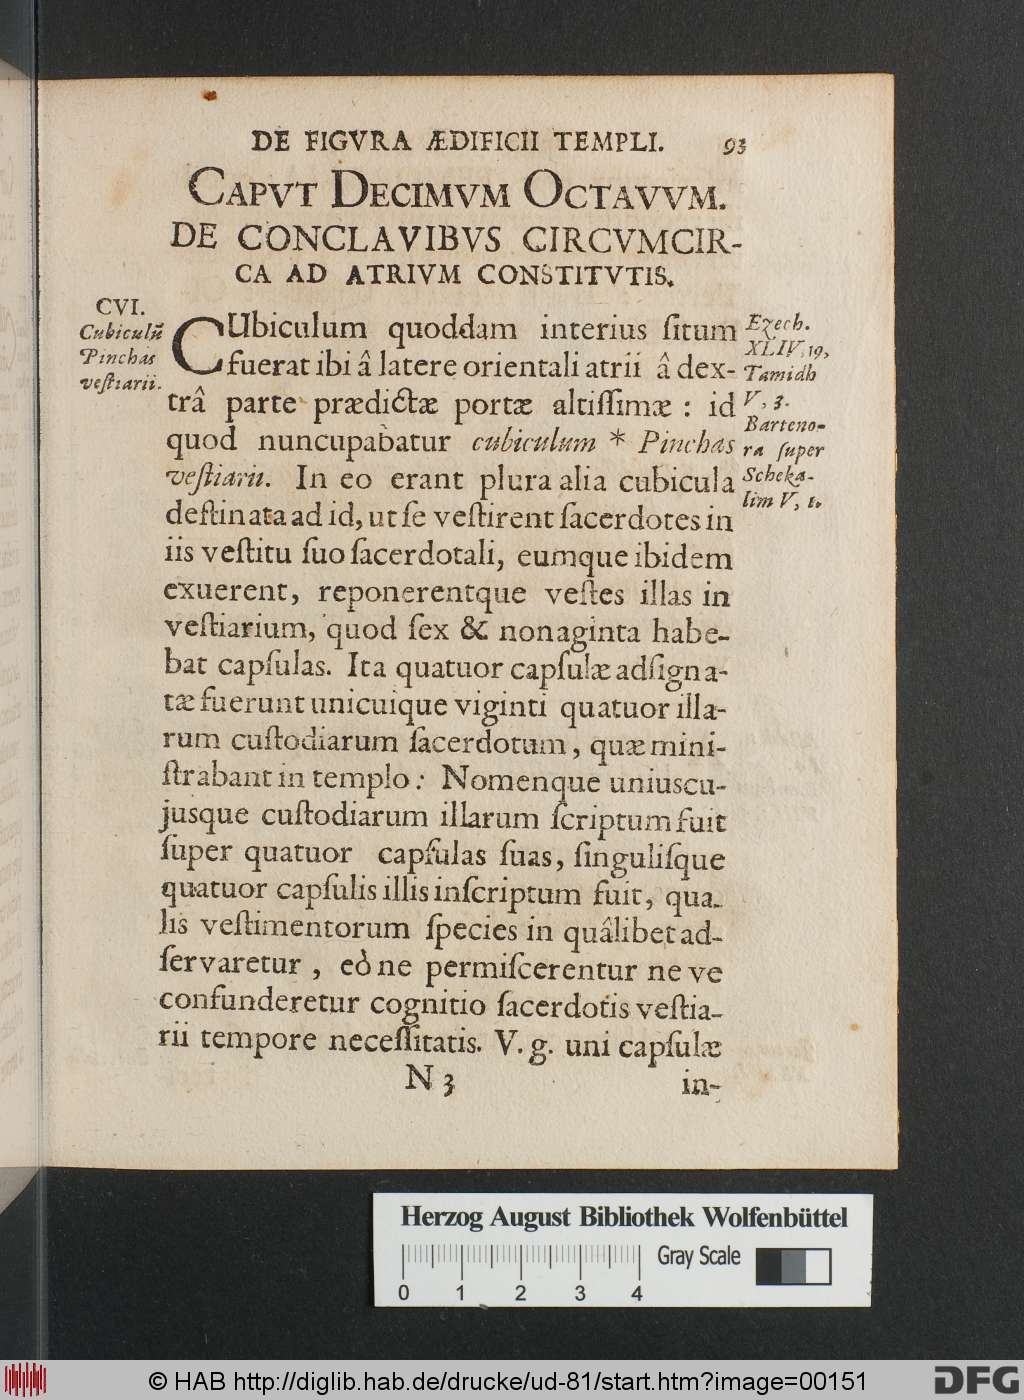 DE FIGVRA ÆDIFICII TEMPLI. 93
CAPVT DECIMVM OCTAVVM.
DE CONCLAVIBVS CIRCVMCIR-
CA AD ATRIVM CONSTITVTIS.
CVI.
Cubiculũ
Pinchas
veſtiarii.
CUbiculum quoddam interius ſitum
fuerat ibi â latere orientali atrii â dex-
trâ parte prædictæ portæ altiſſimæ : id
quod nuncupabatur cubiculum * Pinchas
veſtiarii. In eo erant plura alia cubicula
deſtinata ad id, ut ſe veſtirent ſacerdotes in
iis veſtitu ſuo ſacerdotali, eumque ibidem
exuerent, reponerentque veſtes illas in
veſtiarium, quod ſex & nonaginta habe-
bat capſulas. Ita quatuor capſulæ adſigna-
tæ fuerunt unicuique viginti quatuor illa-
rum cuſtodiarum ſacerdotum, quæ mini-
ſtrabant in templo: Nomenque uniuscu-
jusque cuſtodiarum illarum ſcriptum fuit
ſuper quatuor capſulas ſuas, ſinguliſque
quatuor capſulis illis inſcriptum fuit, qua-
lis veſtimentorum ſpecies in quâlibet ad-
ſervaretur, eò ne permiſcerentur ne ve
confunderetur cognitio ſacerdotis veſtia-
rii tempore neceſſitatis. V. g. uni capſulæ
Ezech.
XLIV, 19,
Tamidh
V, 3.
Barteno-
ra ſuper
Scheka-
lim V, 1.
N 3
in-
Herzog August Bibliothek Wolfenbüttel
Gray Scale
0 1 2 3 4
© HAB http://diglib.hab.de/drucke/ud-81/start.htm?image=00151
DFG